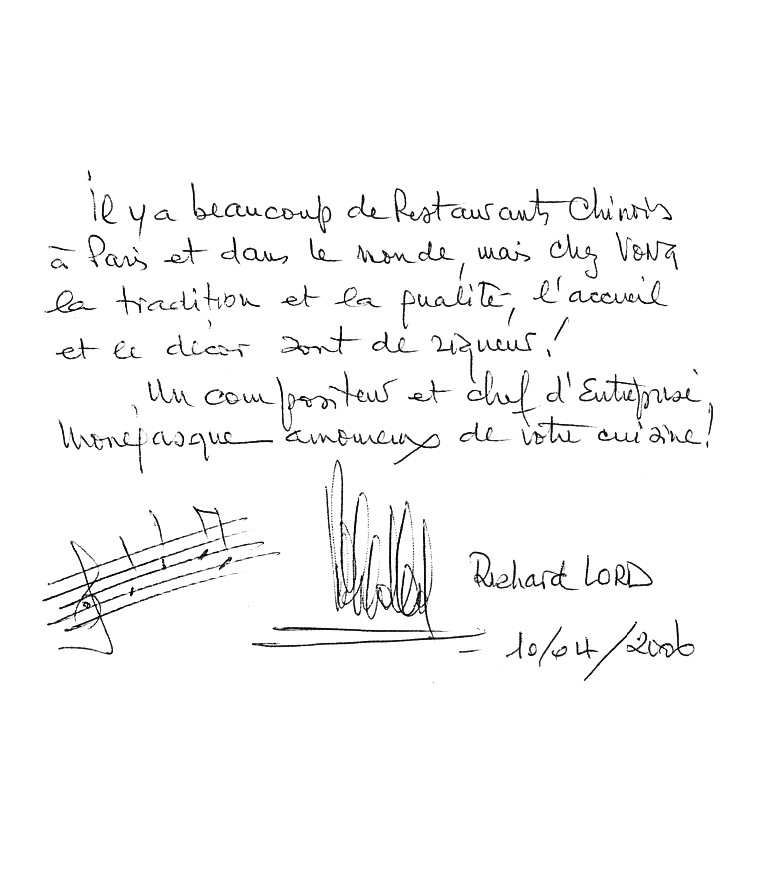 Il y a beaucoup de Restaurants Chinois
à Paris et dans le monde, mais chez VONG
la tradition et la qualité, l'accueil
et le décor sont de rigueur !
Un compositeur et chef d'Entreprise,
Monégasque amoureux de votre cuisine !
Richard LORD
10/04/2006